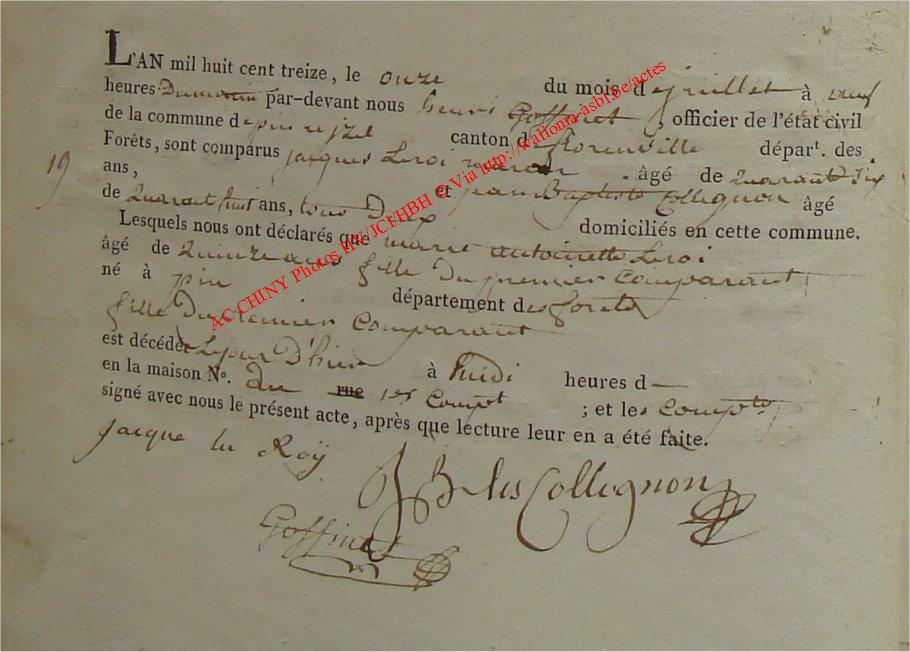 L'AN mil huit cent treize, le onze du mois de juillet à neuf
heures Dumatin par-devant nous henri Goffinet, officier de l'état civil
de la commune de pin et izel canton de florenville départ. des
Forêts, sont comparus jacques Leroi âgé de Quarante six
19
ans, et jean Baptiste Collignon âgé
de Quarant huit ans, tous Deux domiciliés en cette commune.
Lesquels nous ont déclarés que marie antoinette Leroi
âgé de Quinze ans fille Du premier comparant,
né à pin département des forets
fille Du premier Comparant
est décédée Lejour D'hier à midi heures d—
en la maison N°. du rue 1er Compt ; et les compts
signé avec nous le présent acte, après que lecture leur en a été faite.
jacque le Roÿ
JB Collignon
Goffinet
AC CHINY Photos HV/JCI/HBH © Via http://wallonia-asbl.be/actes